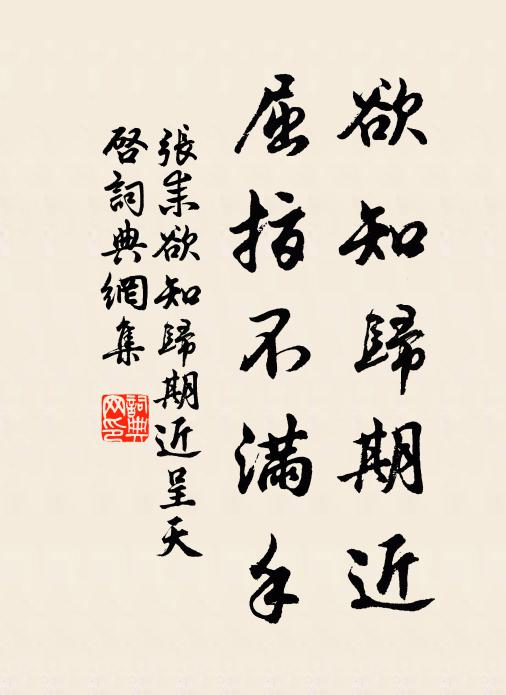 欲知歸期近
屈指不滿手
張耒欲知歸期近呈天
啓詞典網集
詞典
网印